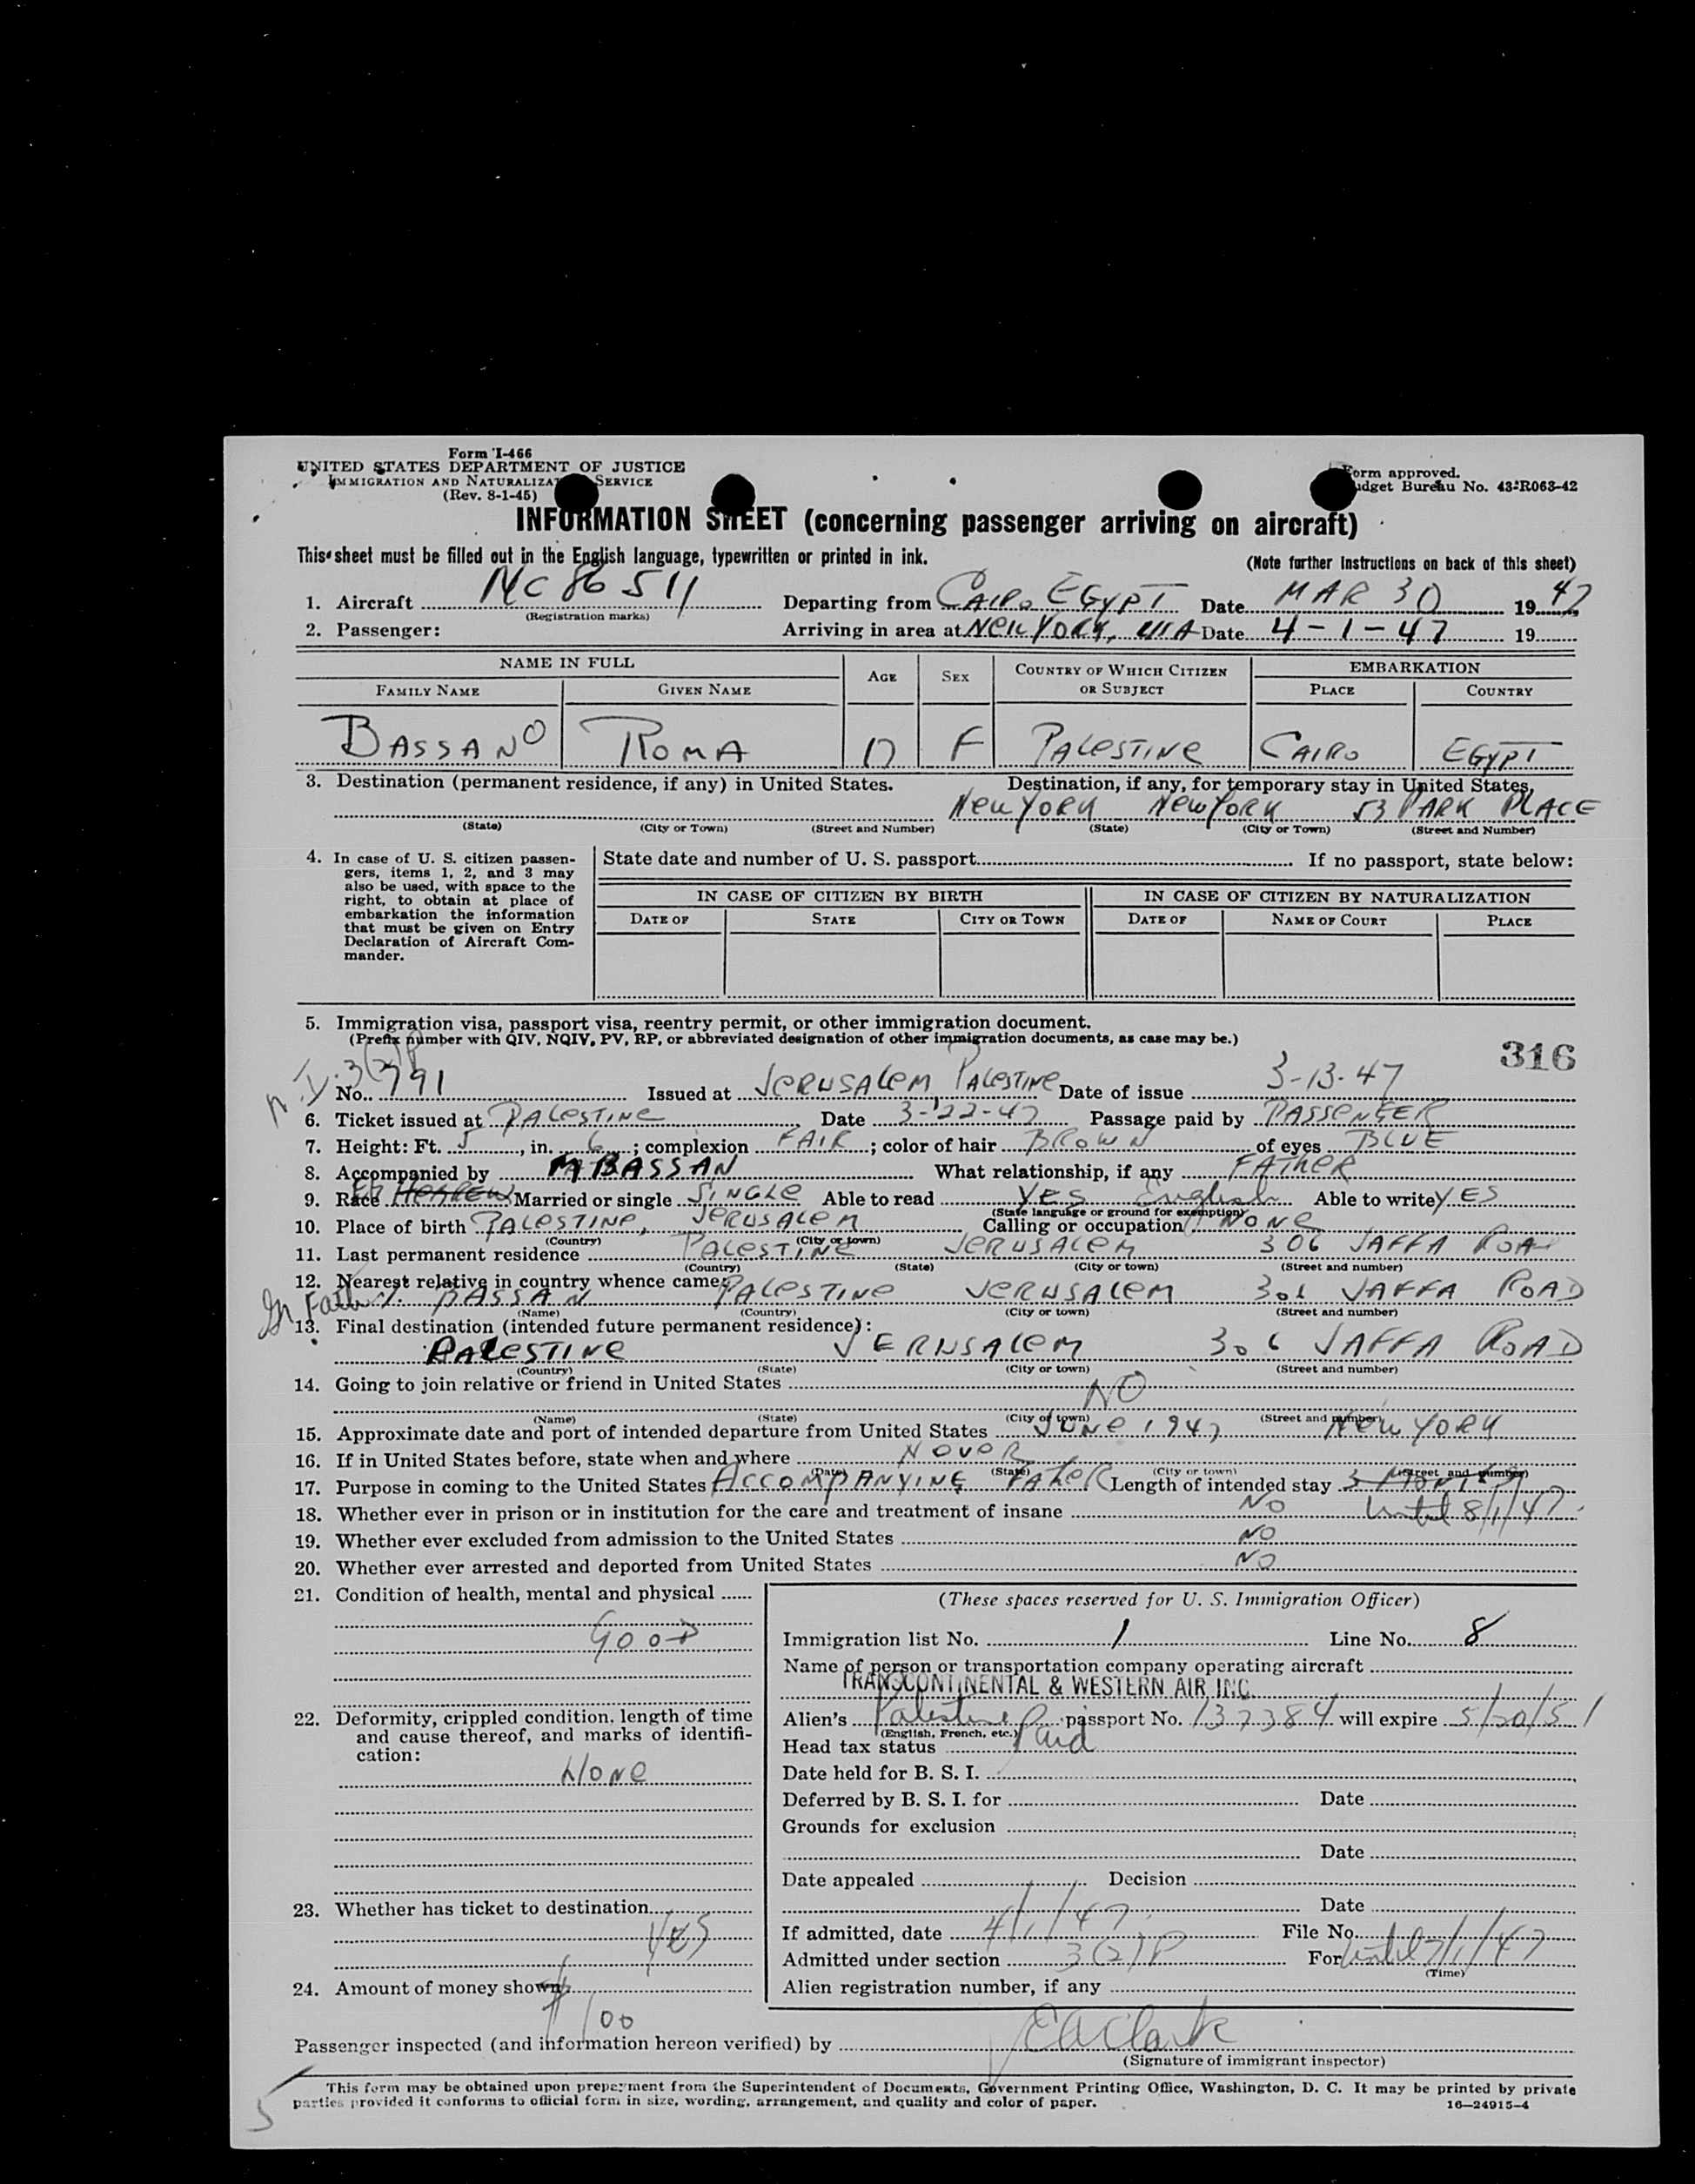 Form I-466
UNITED STATES DEPARTMENT OF JUSTICE
IMMIGRATION AND NATURALIZATION SERVICE
(Rev. 8-1-45)
Form approved.
Budget Bureau No. 43-R063-42
INFORMATION SHEET (concerning passenger arriving on aircraft)
This sheet must be filled out in the English language, typewritten or printed in ink.
(Note further instructions on back of this sheet)
1. Aircraft NC 86511 Departing from CAIRO EGYPT Date MAR 30 1947
(Registration marks)
2. Passenger: Arriving in area at NEW YORK, USA Date 4-1-47 19
NAME IN FULL AGE SEX COUNTRY OF WHICH CITIZEN OR SUBJECT EMBARKATION
FAMILY NAME GIVEN NAME PLACE COUNTRY
BASSANO ROMA 17 F PALESTINE CAIRO EGYPT
3. Destination (permanent residence, if any) in United States. Destination, if any, for temporary stay in United States,
NEW YORK NEW YORK 53 PARK PLACE
(State) (City or Town) (Street and Number) (State) (City or Town) (Street and Number)
4. In case of U. S. citizen passengers, items 1, 2, and 3 may also be used, with space to the right, to obtain at place of embarkation the information that must be given on Entry Declaration of Aircraft Commander.
State date and number of U. S. passport If no passport, state below:
IN CASE OF CITIZEN BY BIRTH IN CASE OF CITIZEN BY NATURALIZATION
DATE OF STATE CITY OR TOWN DATE OF NAME OF COURT PLACE
5. Immigration visa, passport visa, reentry permit, or other immigration document.
(Prefix number with QIV, NQIV, PV, RP, or abbreviated designation of other immigration documents, as case may be.)
316
N.I. 3(2)P
No. 791 Issued at JERUSALEM PALESTINE Date of issue 3-13-47
6. Ticket issued at PALESTINE Date 3-22-47 Passage paid by PASSENGER
7. Height: Ft. 5, in. 6; complexion FAIR; color of hair BROWN of eyes BLUE
8. Accompanied by M BASSAN What relationship, if any FATHER
9. Race HEBREW Married or single SINGLE Able to read YES English Able to write YES
(State language or ground for exemption)
10. Place of birth PALESTINE, JERUSALEM Calling or occupation NONE
(Country) (City or town)
11. Last permanent residence PALESTINE JERUSALEM 306 JAFFA ROAD
(Country) (State) (City or town) (Street and number)
12. Nearest relative in country whence came:
BASSAN PALESTINE JERUSALEM 306 JAFFA ROAD
(Name) (Country) (City or town) (Street and number)
13. Final destination (intended future permanent residence):
PALESTINE JERUSALEM 306 JAFFA ROAD
(Country) (State) (City or town) (Street and number)
14. Going to join relative or friend in United States NO
(Name) (State) (City or town) (Street and number)
15. Approximate date and port of intended departure from United States JUNE 1947 NEW YORK
16. If in United States before, state when and where NOVOR
(Date) (State) (City or town) (Street and number)
17. Purpose in coming to the United States ACCOMPANYING FATHER Length of intended stay 3 MONTHS
Until 8/1/47
18. Whether ever in prison or in institution for the care and treatment of insane NO
19. Whether ever excluded from admission to the United States NO
20. Whether ever arrested and deported from United States NO
21. Condition of health, mental and physical
GOOD
22. Deformity, crippled condition, length of time and cause thereof, and marks of identification:
NONE
23. Whether has ticket to destination
YES
24. Amount of money shown
$100
(These spaces reserved for U. S. Immigration Officer)
Immigration list No. 1 Line No. 8
Name of person or transportation company operating aircraft
TRANSCONTINENTAL & WESTERN AIR INC.
Alien's Palestine passport No. 137384 will expire 5/20/51
(English, French, etc.)
Head tax status Paid
Date held for B. S. I.
Deferred by B. S. I. for Date
Grounds for exclusion
Date
Date appealed Decision
Date
If admitted, date 4/1/47 File No.
Admitted under section 3(2)P For until 7/1/47
(Time)
Alien registration number, if any
Passenger inspected (and information hereon verified) by EA Clark
(Signature of immigrant inspector)
This form may be obtained upon prepayment from the Superintendent of Documents, Government Printing Office, Washington, D. C. It may be printed by private
parties provided it conforms to official form in size, wording, arrangement, and quality and color of paper.
16—24915-4
5